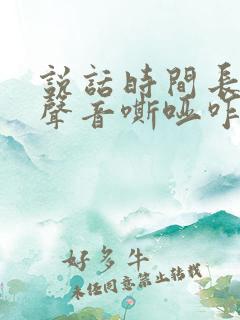 説話時間長
聲音嘶啞咋
好多牛
未经同意禁止转载